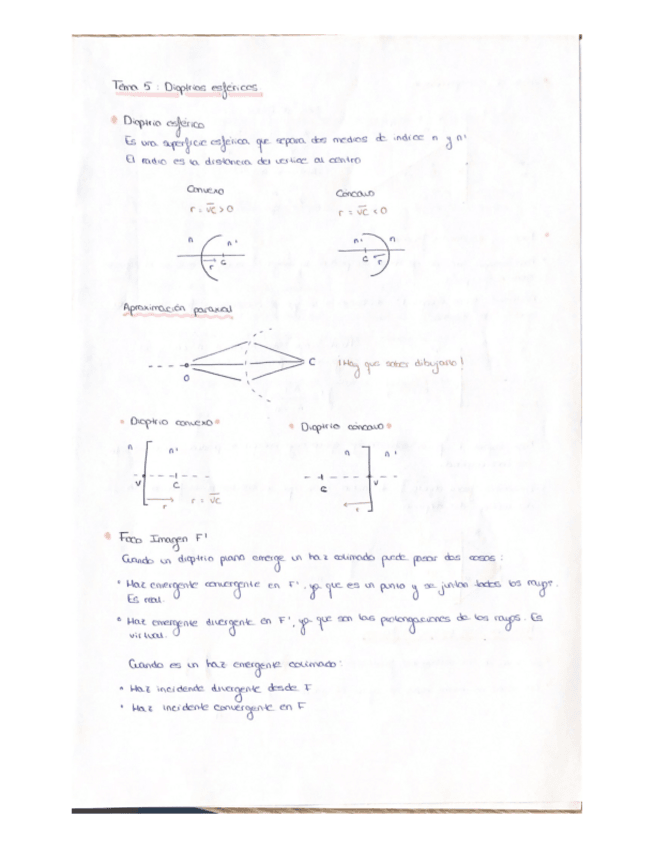 Tema 5: Dioptrios esféricos
Dioptrio esférico
Es una superficie esférica que separa dos medios de índice n y n'
El radio es la distancia del vertice al centro
Convexo
Cóncavo
r = VC > 0
r = VC < 0
n n' C r
n' n C r
Aproximación paraxial
O C ¡Hay que saber dibujarlo!
Dioptrio convexo
Dioptrio cóncavo
n n' V C r r = VC
n n' C V r
Foco Imagen F'
Cuando un dioptrio plano emerge un haz colimado puede pasar dos cosas:
Haz emergente convergente en F', ya que es un punto y se juntan todos los rayos.
Es real.
Haz emergente divergente en F', ya que son las prolongaciones de los rayos. Es
virtual.
Cuando es un haz emergente colimado:
Haz incidente divergente desde F
Haz incidente convergente en F